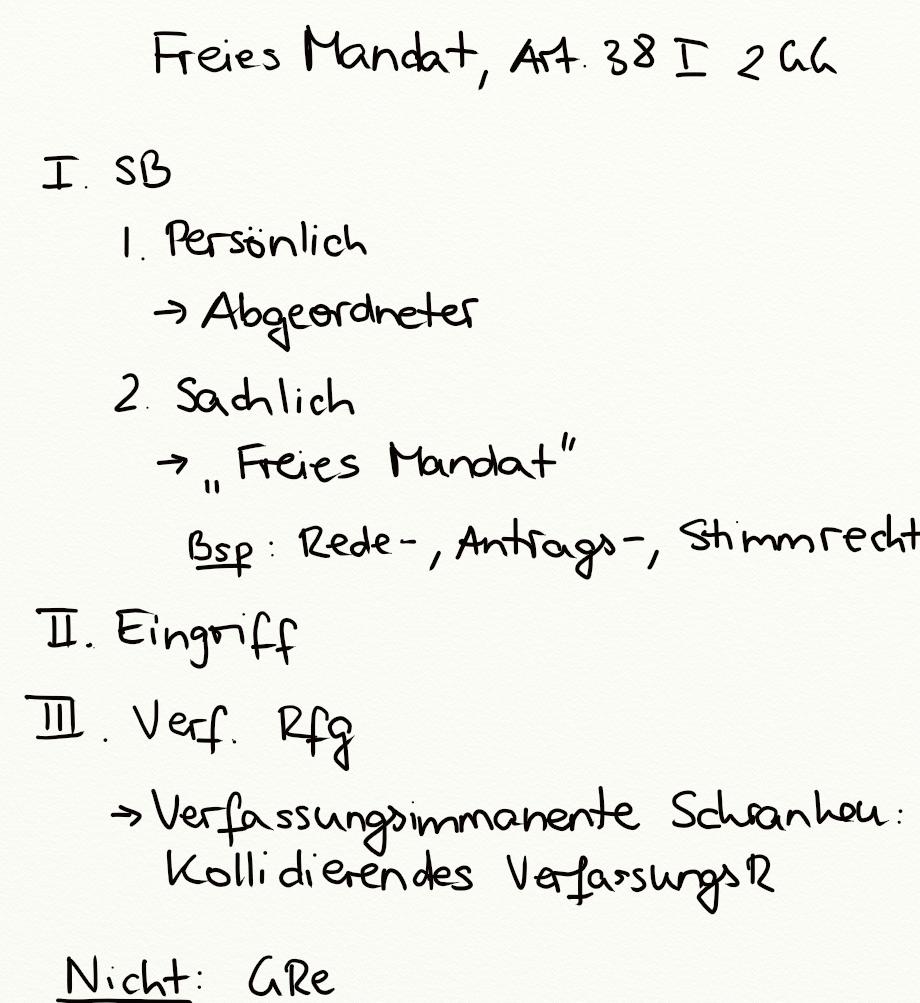 Freies Mandat, Art. 38 I 2 GG
I. SB
1. Persönlich
→ Abgeordneter
2. Sachlich
→ „Freies Mandat"
Bsp: Rede-, Antrags-, Stimmrecht
II. Eingriff
III. Verf. Rfg
→ Verfassungsimmanente Schranken:
Kollidierendes VerfassungsR
Nicht: GRe